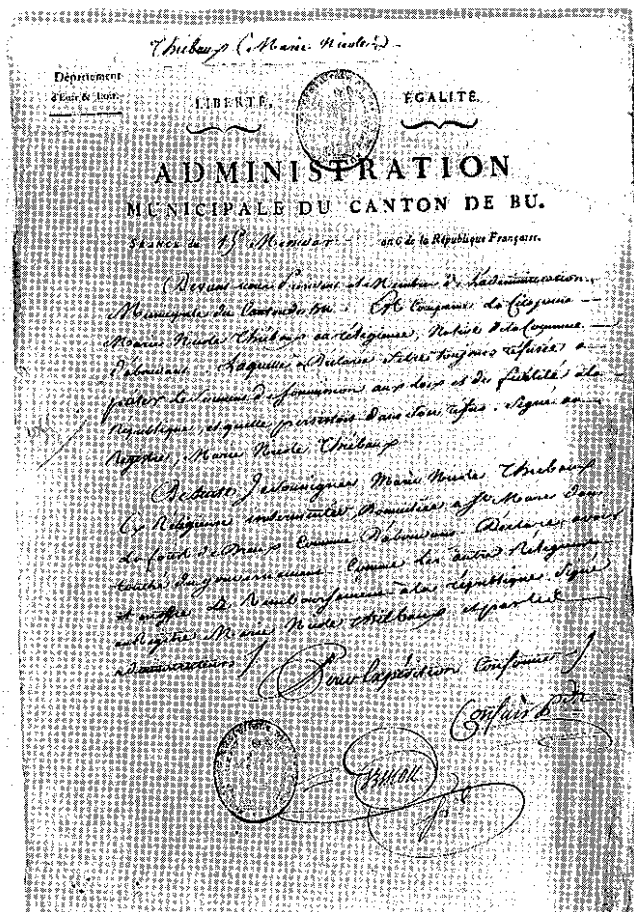 Thiebaux (Marie Nicole)
Département
d'Eure & Loir.
LIBERTÉ, ÉGALITÉ.
ADMINISTRATION
MUNICIPALE DU CANTON DE BU.
Séance du 15 Messidor an 6 de la République Française.
Devant nous Président et Membres de L'administration
Municipale du Canton de Bu. Est Comparue la Citoyenne
Marie Nicole Thiebaux ex religieuse, Native de la Commune
d'abondant. Laquelle a Déclaré s'être toujours refusée a
preter le Serment de soumission aux loix et de fidélité a la
République, et quelle persistoit dans son refus. Signé au
Registre, Marie Nicole Thiebaux
Je soussignée Marie Nicole Thiebaux
Ex Religieuse insermentée, Domiciliée a St Marc dans
La forêt de Dreux Commune D'abondant Déclare avoir
touché du gouvernement Comme Les autres Religieuses
et en offre Le Remboursement a la république. Signé
au Registre Marie Nicole Thiebaux et par les
administrateurs
Pour Expédition Conforme